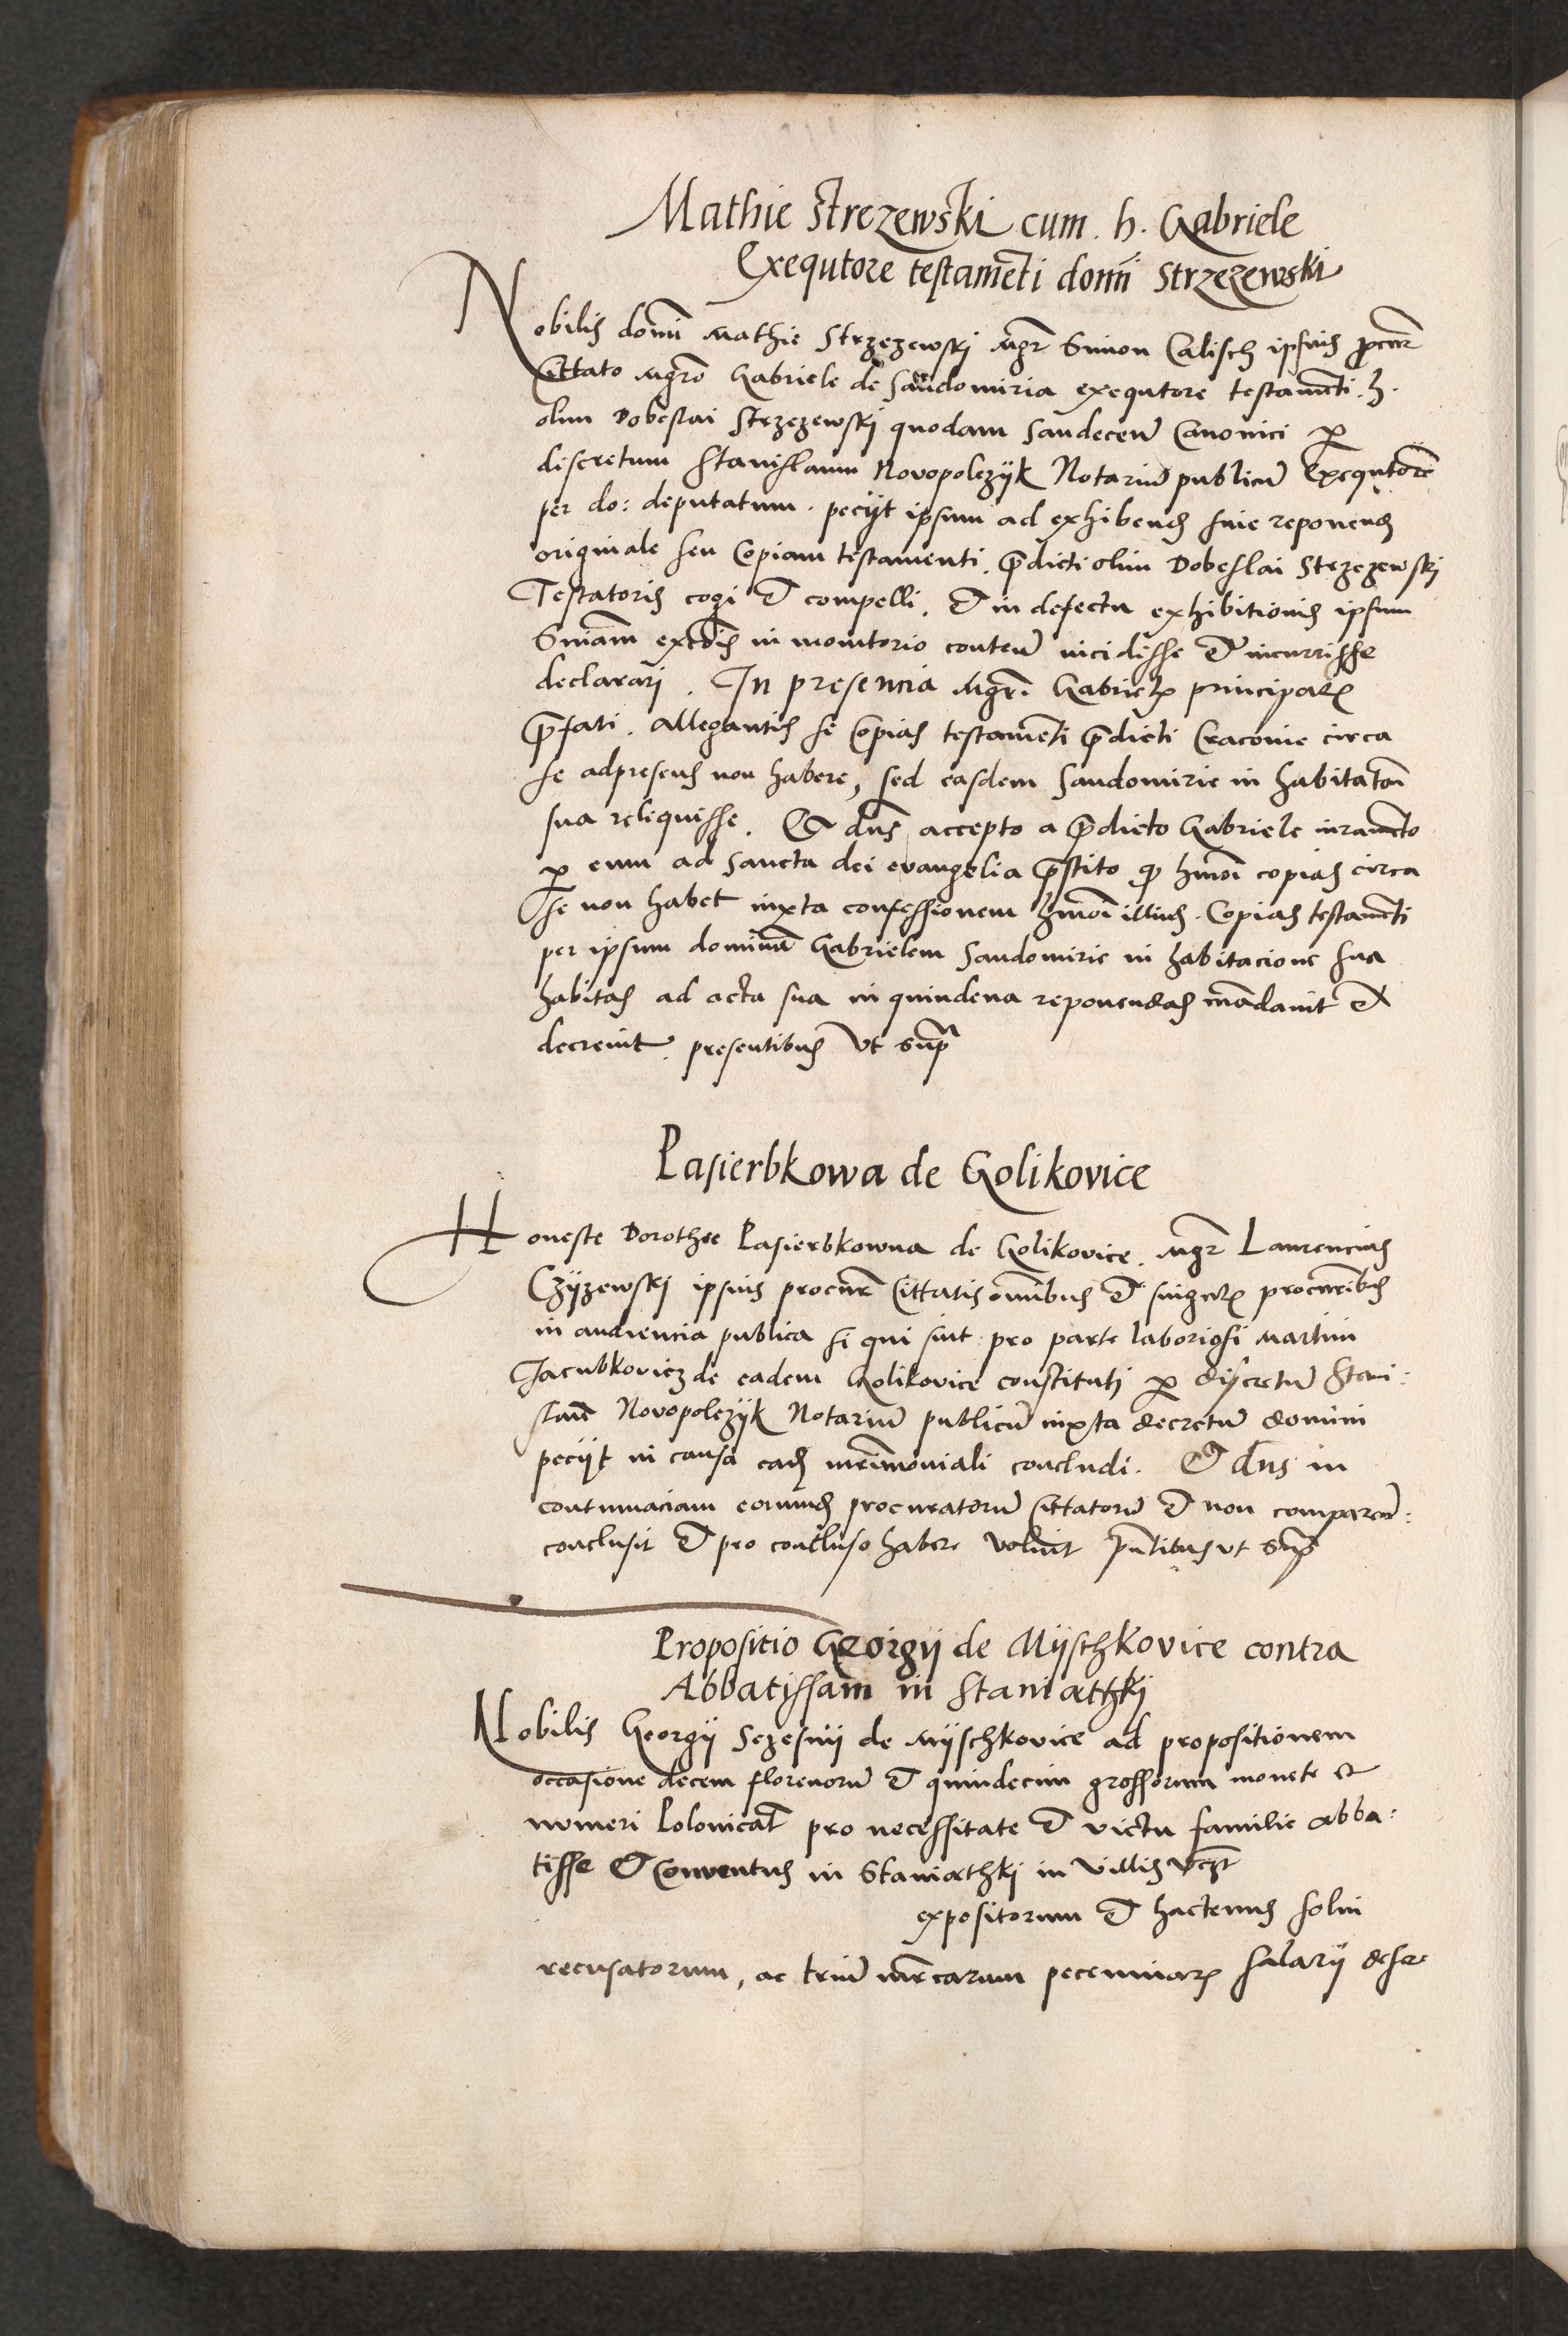 Mathie Strezewski cum h. Gabriele
Exequtore testamēti domī Strzezewski
Nobilis domī Mathie Strzezewskj Mgr̄ Simon Calisch ipsius p̄cur̄
Cittato Mgrō Gabriele de Sandomiria exequtore testamēti h.
olim Dobeslai Strzezewskj quodam Sandecen̄ Canonici ꝑ
discretum Stanislaum Novopolczÿk Notariū publicū Exequtorē
per do: deputatum. peciit ipsum ad exhibend̄ sive reponend̄
originale seu Copiam testamenti p̄dicti olim Dobeslai Strzezewskj
Testatoris cogi et compelli. et in defectu exhibitionis ipsum
Sniām excōis in monitorio conten̄ incidisse et incurrisse
declarari. In presencia Mgri. Gabriel̄ principal̄
p̄fati. Allegantis se Copias testamēti p̄dicti Cracovie circa
se adpresens non habere, sed easdem Sandomirie in habitatōn̄
sua reliquisse. Et dn̄s accepto a p̄dicto Gabriele iuramēto
ꝑ eum ad sancta dei evangelia p̄stito ꝙ hm̄oi copias circa
se non habet iuxta confessionem hm̄oi illius. Copias testamēti
per ipsum dominū Gabrielem Sandomirie in habitacione sua
habitas ad acta sua in quindena reponendas mādavit et
decrevit. presentibus ut sup̄
Pasierbkowa de Golikovice
Honeste Dorothee Pasierbkowna de Golikovice. Mgr̄ Laurencius
Czÿzewskj ipsius procur̄ Cittatis omībus et singul̄ procurībus
in audiencia publica si qui sint pro parte laboriosi Martini
Jacubkovicz de eadem Golikovice constituti ꝑ discretū Stani:
slaū Novopolczÿk Notariū publicū iuxta decretū domini
peciit in causa ead̄ mr̄imoniali concludi. Et dn̄s in
contumaciam eorund̄ procuratorū Cittatorū et non comparen̄:
conclusit et pro concluso habere voluit p̄ntibus ut sup̄
Propositio Georgii de Mÿschkovice contra
Abbatissam in Staniathkj
Nobilis Georgii Sczesnii de Mÿschkovice ad propositionem
occasione decem florenorū et quindecim grossorum monete et
numeri Polonical̄ pro necessitate et victu familie abba:
tisse et Conventus in Staniathkj in villis
expositorum et hactenus solui
recusatorum, ac triū mr̄carum pecuniar̄ salarii deser